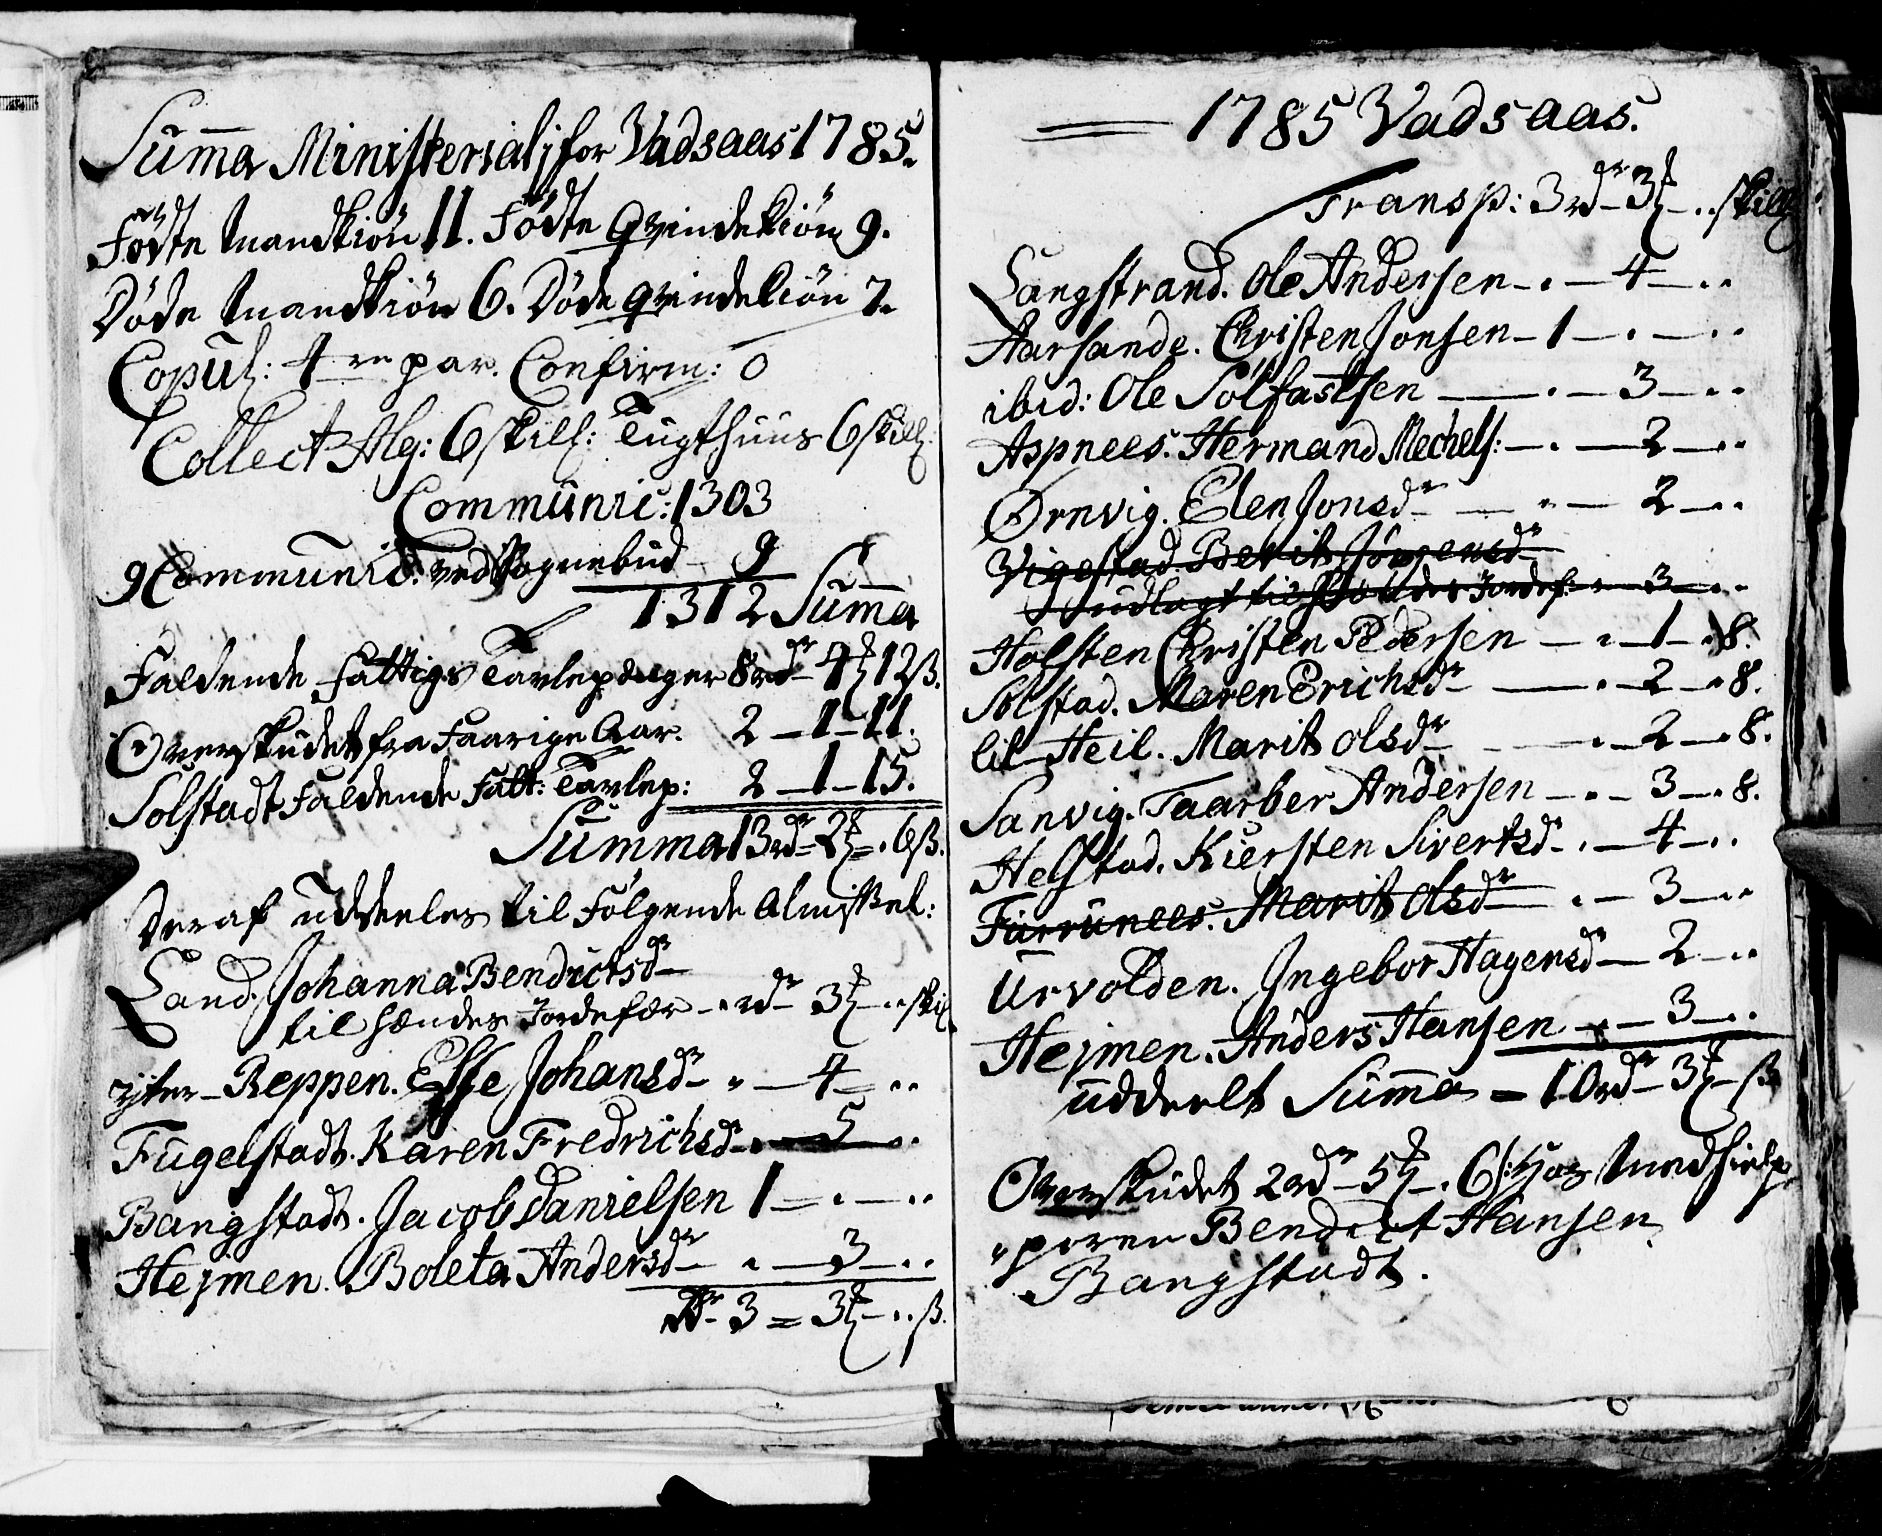 Summa Ministerialj for Vadsaas 1785.
Fødte Mandkiön 11. Fødte Qvindekiön 9.
Døde Mandkiön 6. Døde qvindekiön 7.
Copul: 4re par. Confirm: 0
Collect Alg: 6 skill: Tugthuus 6 skill:
Communic: 1303
9 Communic. ved Sognebud 9
1312 Summa
Faldende fattigs Tavlepenger 8rdr 4 12ß.
Overskudet fra Faarige Aar. 2 – 1 – 11.
Solstadt Faldende Fatt: Tavlep: 2 – 1 – 15.
Summa 13rdr – 2 – . 6ß.
Deraf uddeeles til Følgende Almisßel:
Land. Johanna Bendictsdr
til hændes Jordefær – . rdr 3 – . . skil
yter – Reppen. Else Johansdr – . – 4 – . .
Fugelstadt. Karen Fredrichsdr – . – 5 – . .
Bangstadt. Jacob Danielsen 1 – . – . .
Hejmen. Boleta Andersdr . – 3 – . .
Rdr 3 = 3 – . . ß.
1785 Vadsaas.
Transp: 3rdr – 3 – . . skill
Langstrand. Ole Andersen – . – 4 – . .
Aarsande. Christen Jonsen – 1 – . – . .
ibid: Ole Solfastsen – . – 3 – . .
Aspnees. Hermand Mechels: – . – 2 – . .
Ørnvig. Elen Jonsdr – . – 2 – . .
Vigestad. Berit Jørgensdr
udlagt til Jordef: . – 3 – . .
Holsten Christen Pedersen – . – 1 – . 8.
Solstad. Maren Erichsdr – . – 2 – . 8.
lil – Heil. Marit Olsdr – . – 2 – . 8.
Sanvig. Taarber Andersen – . – 3 – . 8.
Helstad. Kiersten Sivertsdr – . – 4 – . .
Furrunees. Marit Olsdr . – 3 – . .
Urvolden. Ingebor Hagensdr – 2 – . .
Hejmen. Anders Hansen – . – 3 – . .
uddeelt Summa = 10rdr – 3 – ß
Overskudet 2rdr – 5 – . 6 hos Medhielp
eren Bendict Hansen
Bangstadt.